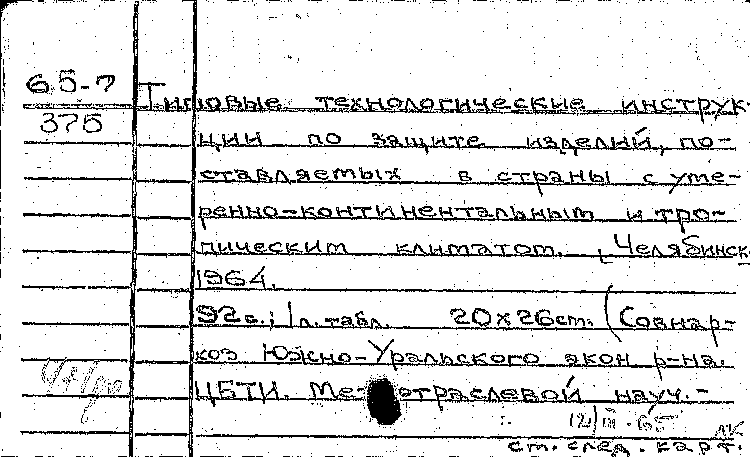 65-7
375
Типовые технологические инструк-
ции по защите изделий, по-
ставляемых в страны с уме-
ренно-континентальным и тро-
пическим климатом. [Челябинск
1964.
92с.; 1л. табл. 20х26ст. (Совнар-
хоз Южно-Уральского экон р-на.
ЦБТИ. Ме отраслевой науч.-
12/III-65
ст. след. карт.